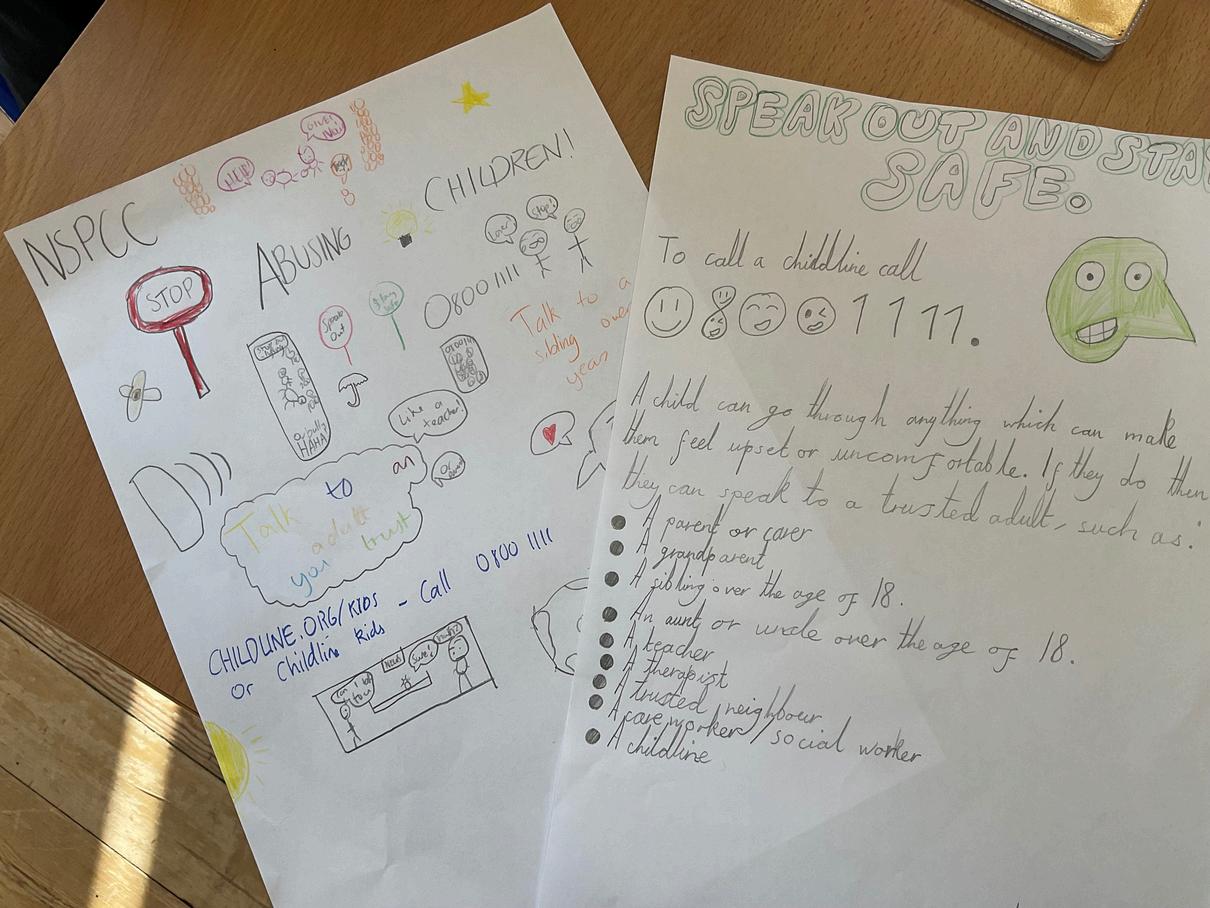 NSPCC
STOP
ABUSING
CHILDREN!
HELP!
GIVE! Now!
Loser!
Stop!
Speak Out
Stay Safe
0800 1111
Talk to a
sibling over
year
HAHA
Like a teacher!
Talk to an
adult
you trust
CHILDLINE.ORG/KIDS - Call 0800 1111
or Childline kids
Sure!
SPEAK OUT AND STAY
SAFE.
To call a childline call
0800 1111.
A child can go through anything which can make
them feel upset or uncomfortable. If they do then
they can speak to a trusted adult, such as:
A parent or carer
A grandparent
A sibling over the age of 18.
An aunt or uncle over the age of 18.
A teacher
A therapist
A trusted neighbour
A care worker / social worker
A childline